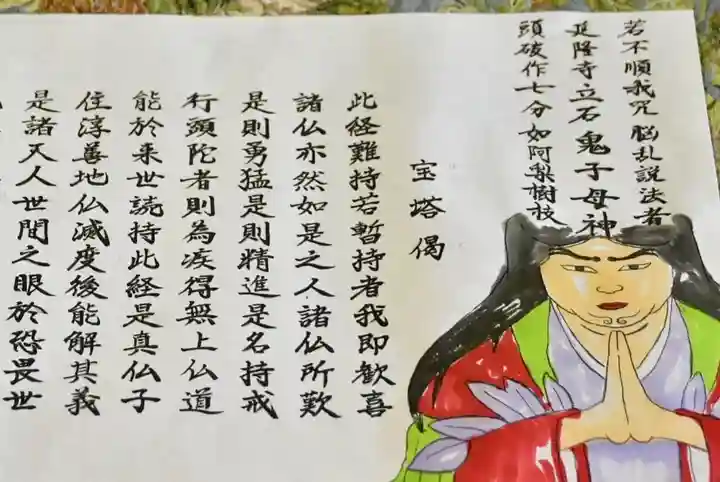 若不順我咒 脳乱説法者
延隆寺立石 鬼子母神
頭破作七分 如阿梨樹枝
宝塔偈
此経難持若暫持者我即歓喜
諸仏亦然如是之人諸仏所歎
是則勇猛是則精進是名持戒
行頭陀者則為疾得無上仏道
能於来世読持此経是真仏子
住淳善地仏滅度後能解其義
是諸天人世間之眼於恐畏世